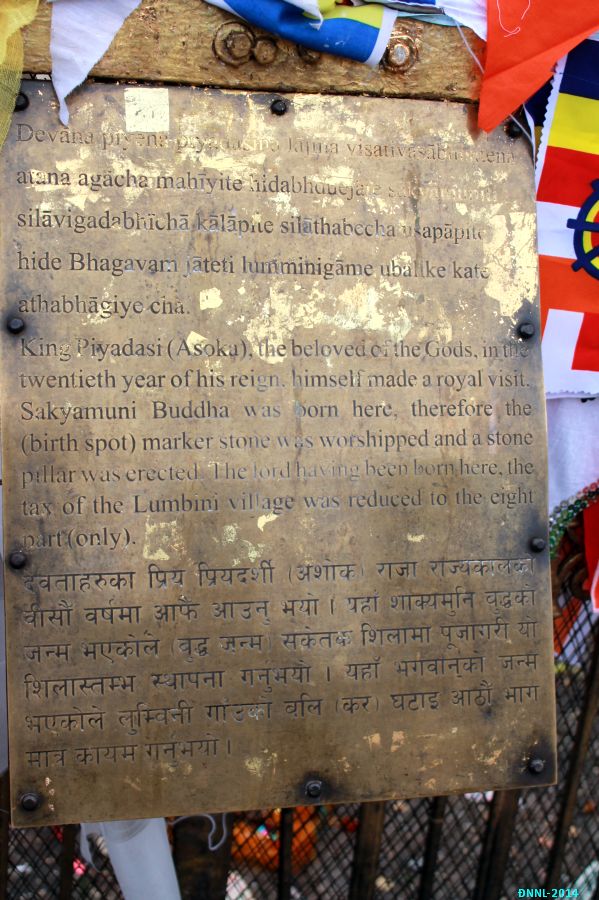 Devāna piyena piyadasina lājina visativasābhisitena
atana agācha mahīyite hidabhduejāte sakyamuniti
silāvigaḍabhīchā kālāpite silāthabhecha usapāpite
hide Bhagavaṃ jāteti luṃminigāme ubalike kate
athabhāgiye cha.
King Piyadasi (Asoka), the beloved of the Gods, in the
twentieth year of his reign, himself made a royal visit.
Sakyamuni Buddha was born here, therefore the
(birth spot) marker stone was worshipped and a stone
pillar was erected. The lord having been born here, the
tax of the Lumbini village was reduced to the eight
part (only).
देवताहरुका प्रिय प्रियदर्शी (अशोक) राजा राज्यकालको
वीसौं वर्षमा आफै आउनु भयो । यहाँ शाक्यमुनि वुद्धको
जन्म भएकोले (वुद्ध जन्म) संकेतक शिलामा पूजागरी यो
शिलास्तम्भ स्थापना गर्नुभयो । यहाँ भगवानको जन्म
भएकोले लुम्विनी गाँउको वलि (कर) घटाइ आठौं भाग
मात्र कायम गर्नुभयो ।
ĐNNL-2014